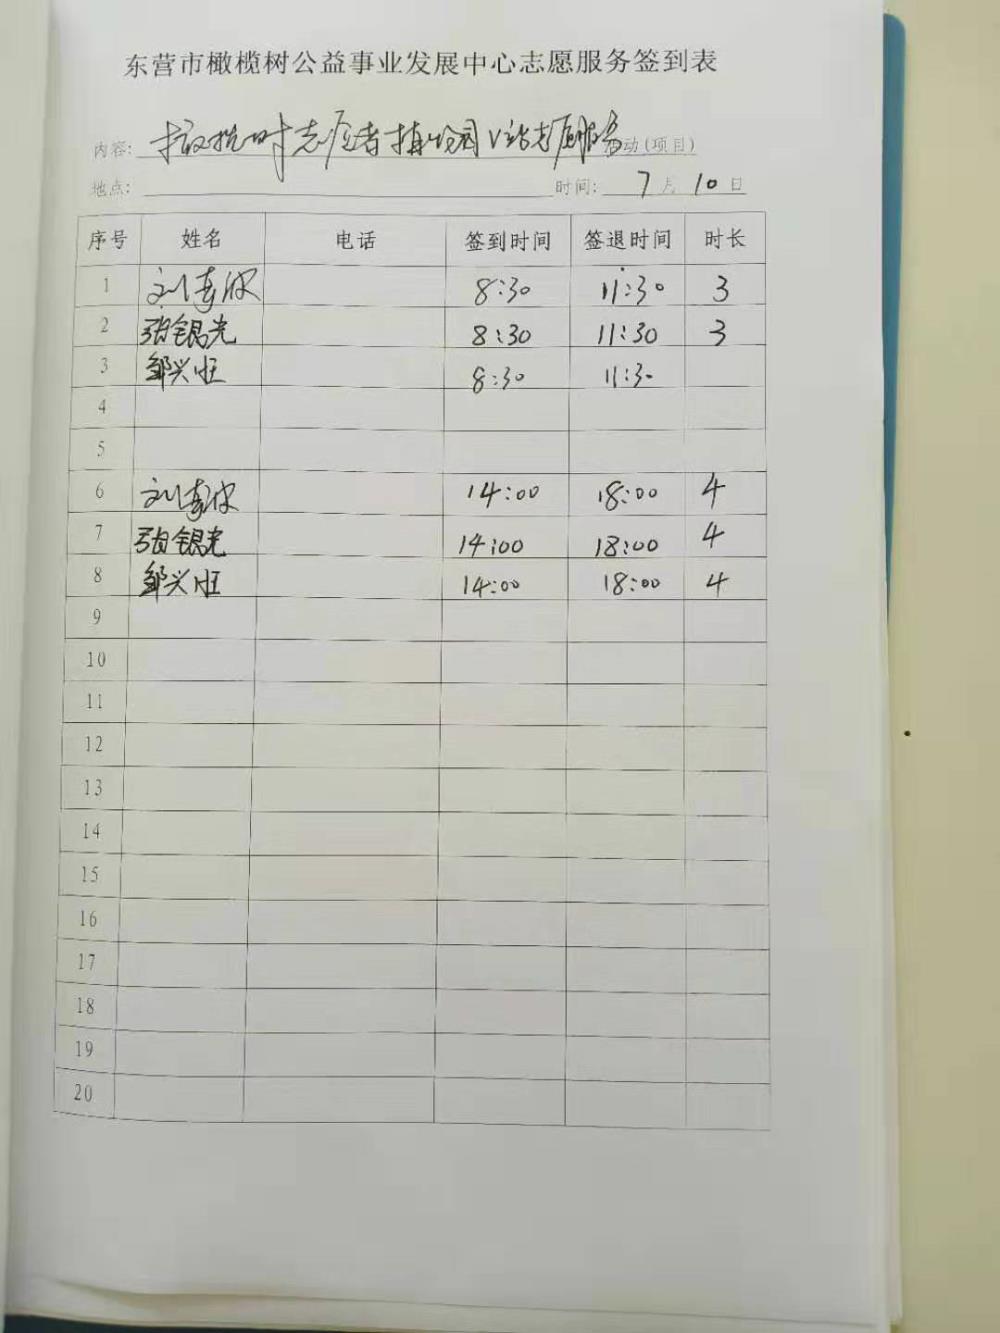 东营市橄榄树公益事业发展中心志愿服务签到表
内容: 橄榄树志愿者 志愿服务 活动(项目)
地点: 时间: 7月10日
序号 姓名 电话 签到时间 签退时间 时长
1 刘 8:30 11:30 3
2 张银光 8:30 11:30 3
3 邹兴旺 8:30 11:30
4
5
6 刘 14:00 18:00 4
7 张银光 14:00 18:00 4
8 邹兴旺 14:00 18:00 4
9
10
11
12
13
14
15
16
17
18
19
20